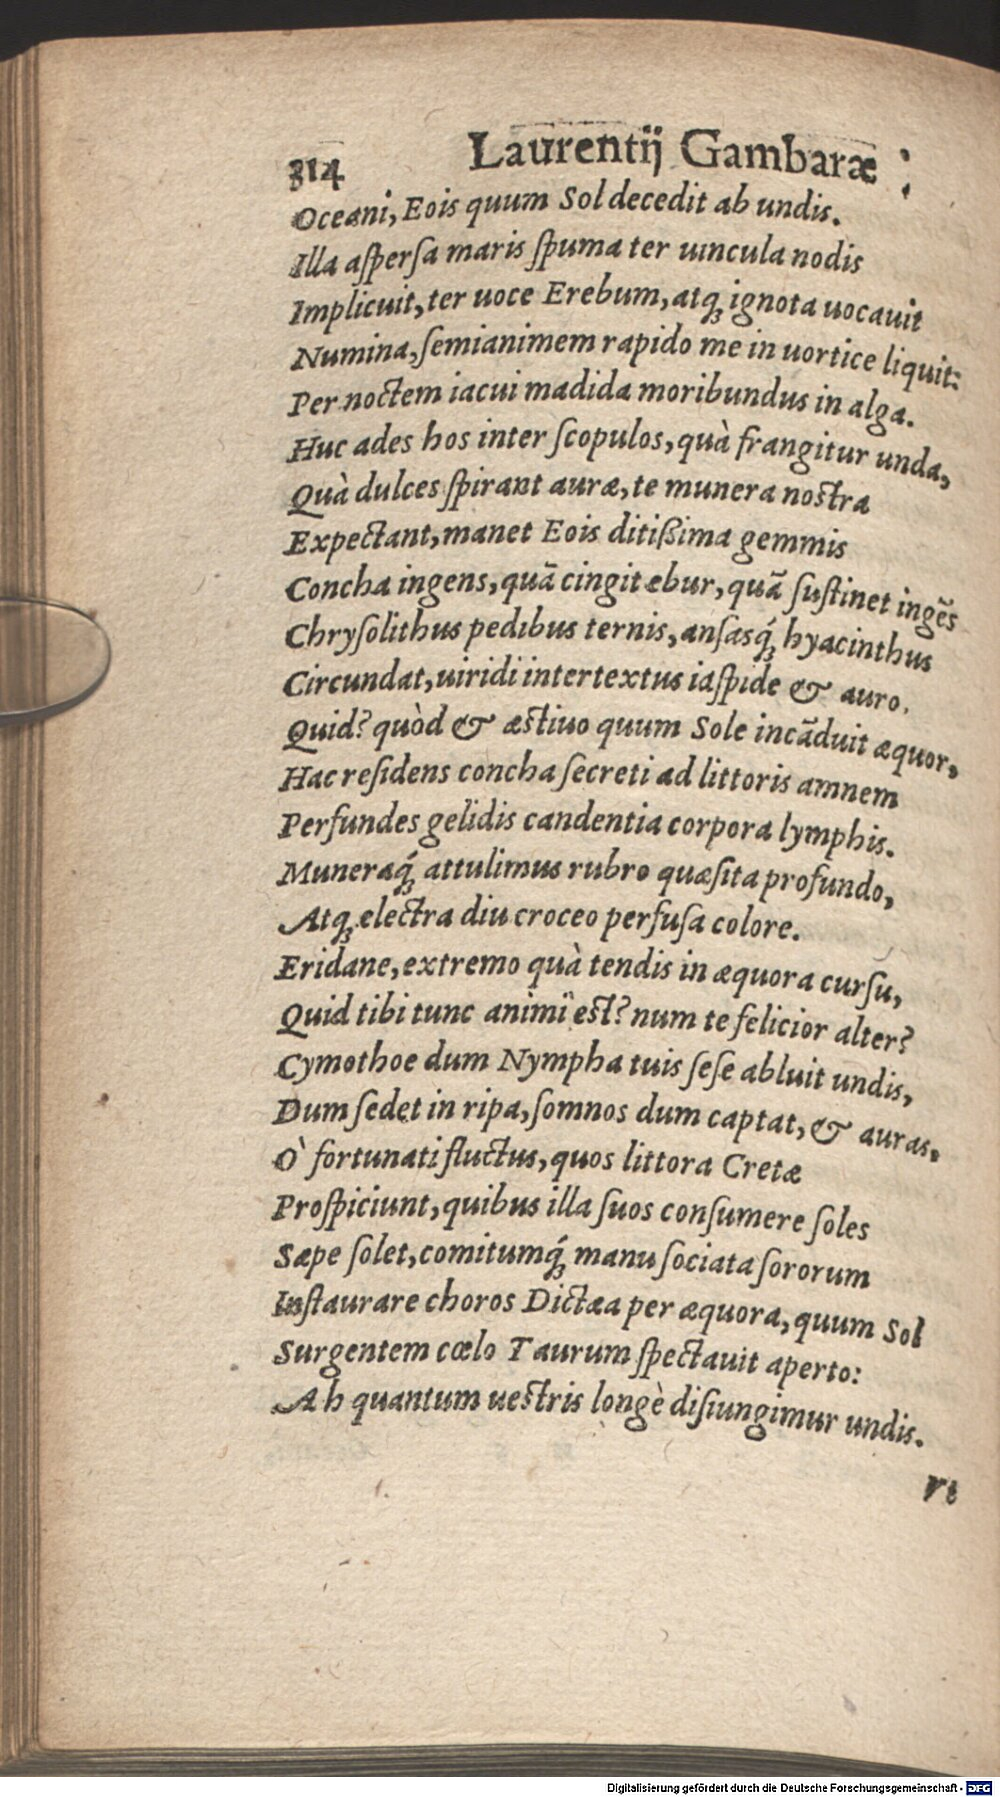 314 Laurentij Gambaræ
Oceani, Eois quum Sol decedit ab undis.
Illa aſperſa maris ſpuma ter uincula nodis
Implicuit, ter uoce Erebum, atqꝫ ignota uocauit
Numina, ſemianimem rapido me in uortice liquit:
Per noctem iacui madida moribundus in alga.
Huc ades hos inter ſcopulos, quà frangitur unda,
Quà dulces ſpirant auræ, te munera noſtra
Expectant, manet Eois ditißima gemmis
Concha ingens, quā cingit ebur, quā ſuſtinet ingēs
Chryſolithus pedibus ternis, anſasqꝫ́ hyacinthus
Circundat, uiridi intertextus iaſpide & auro.
Quid? quòd & æſtiuo quum Sole incāduit æquor,
Hac reſidens concha ſecreti ad littoris amnem
Perfundes gelidis candentia corpora lymphis.
Muneraqꝫ́ attulimus rubro quæſita profundo,
Atqꝫ electra diu croceo perfuſa colore.
Eridane, extremo quà tendis in æquora curſu,
Quid tibi tunc animi eſt? num te felicior alter?
Cymothoe dum Nympha tuis ſeſe abluit undis,
Dum ſedet in ripa, ſomnos dum captat, & auras.
Ò fortunati fluctus, quos littora Cretæ
Proſpiciunt, quibus illa ſuos conſumere ſoles
Sæpe ſolet, comitumqꝫ́ manu ſociata ſororum
Inſtaurare choros Dictæa per æquora, quum Sol
Surgentem cœlo Taurum ſpectauit aperto:
Ah quantum ueſtris longè diſiungimur undis.
Digitalisierung gefördert durch die Deutsche Forschungsgemeinschaft - DFG